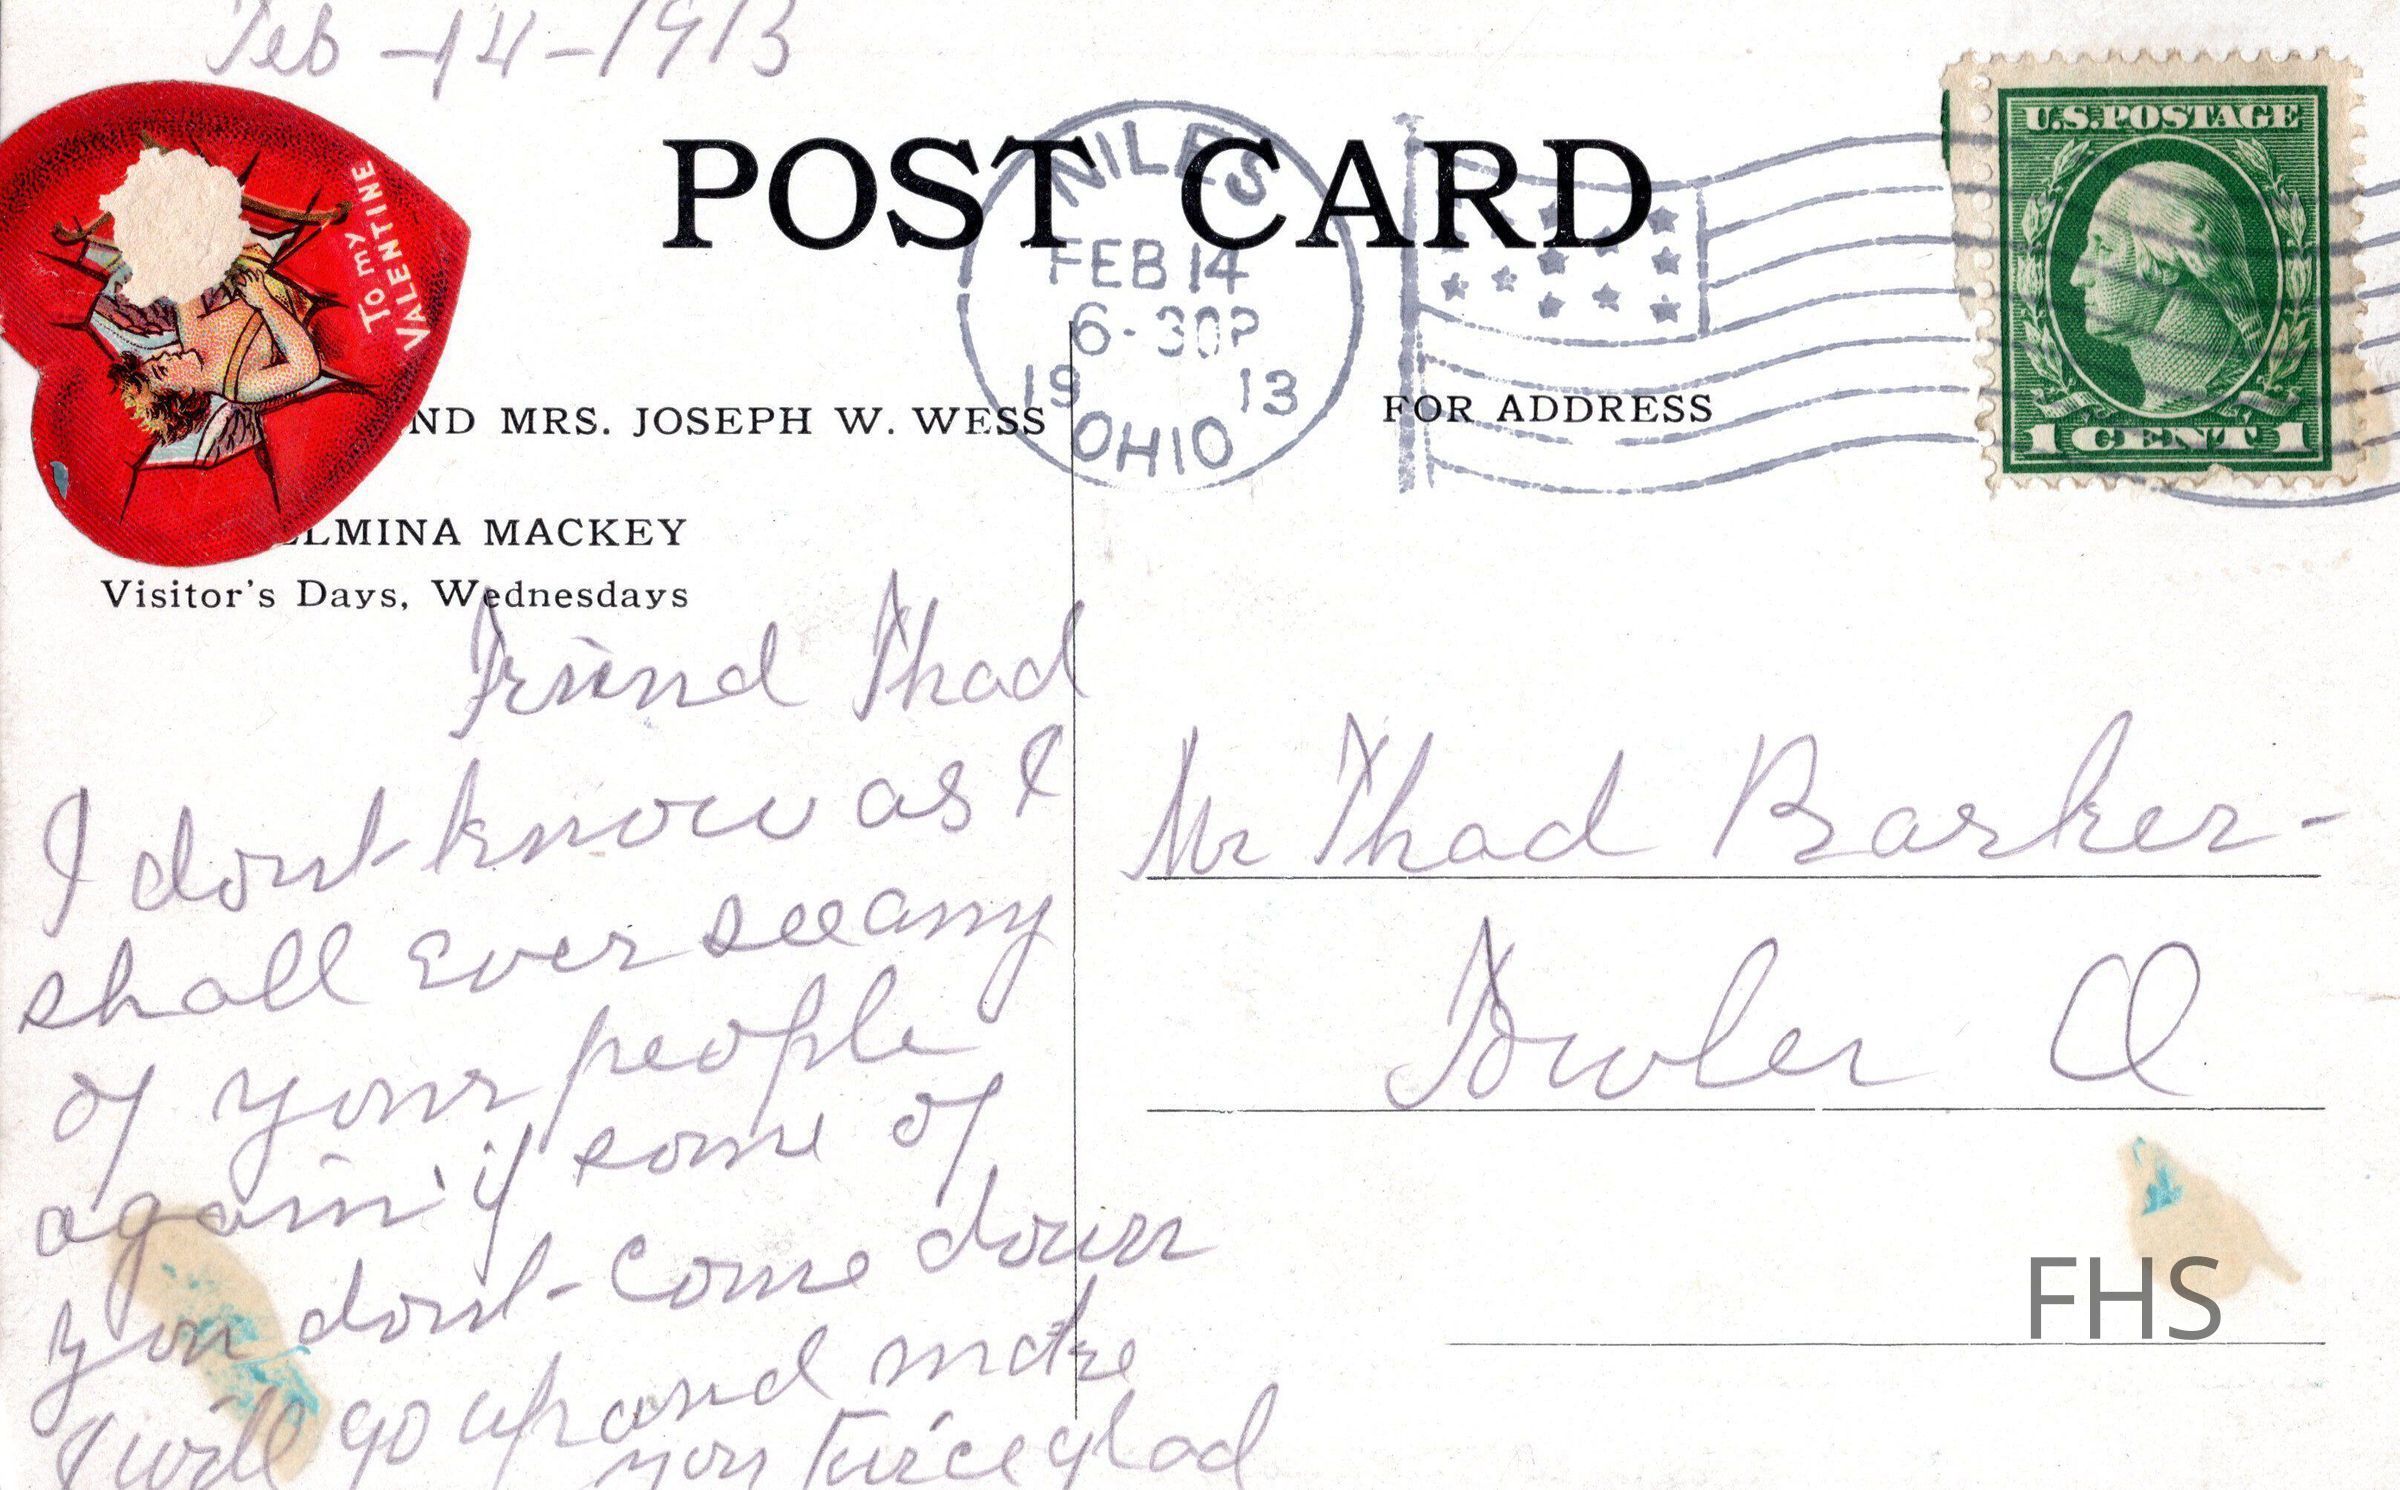 Feb -14-1913
POST CARD
TO my
VALENTINE
NILES
FEB 14
6-30P
19 13
OHIO
U.S. POSTAGE
1 CENT 1
ND MRS. JOSEPH W. WESS
FOR ADDRESS
LMINA MACKEY
Visitor's Days, Wednesdays
Friend Thad
I dont know as I
shall ever see any
of your people
again if some of
you dont come down
I will go up and make
you twice glad
Mr Thad Barker-
Fowler O
FHS